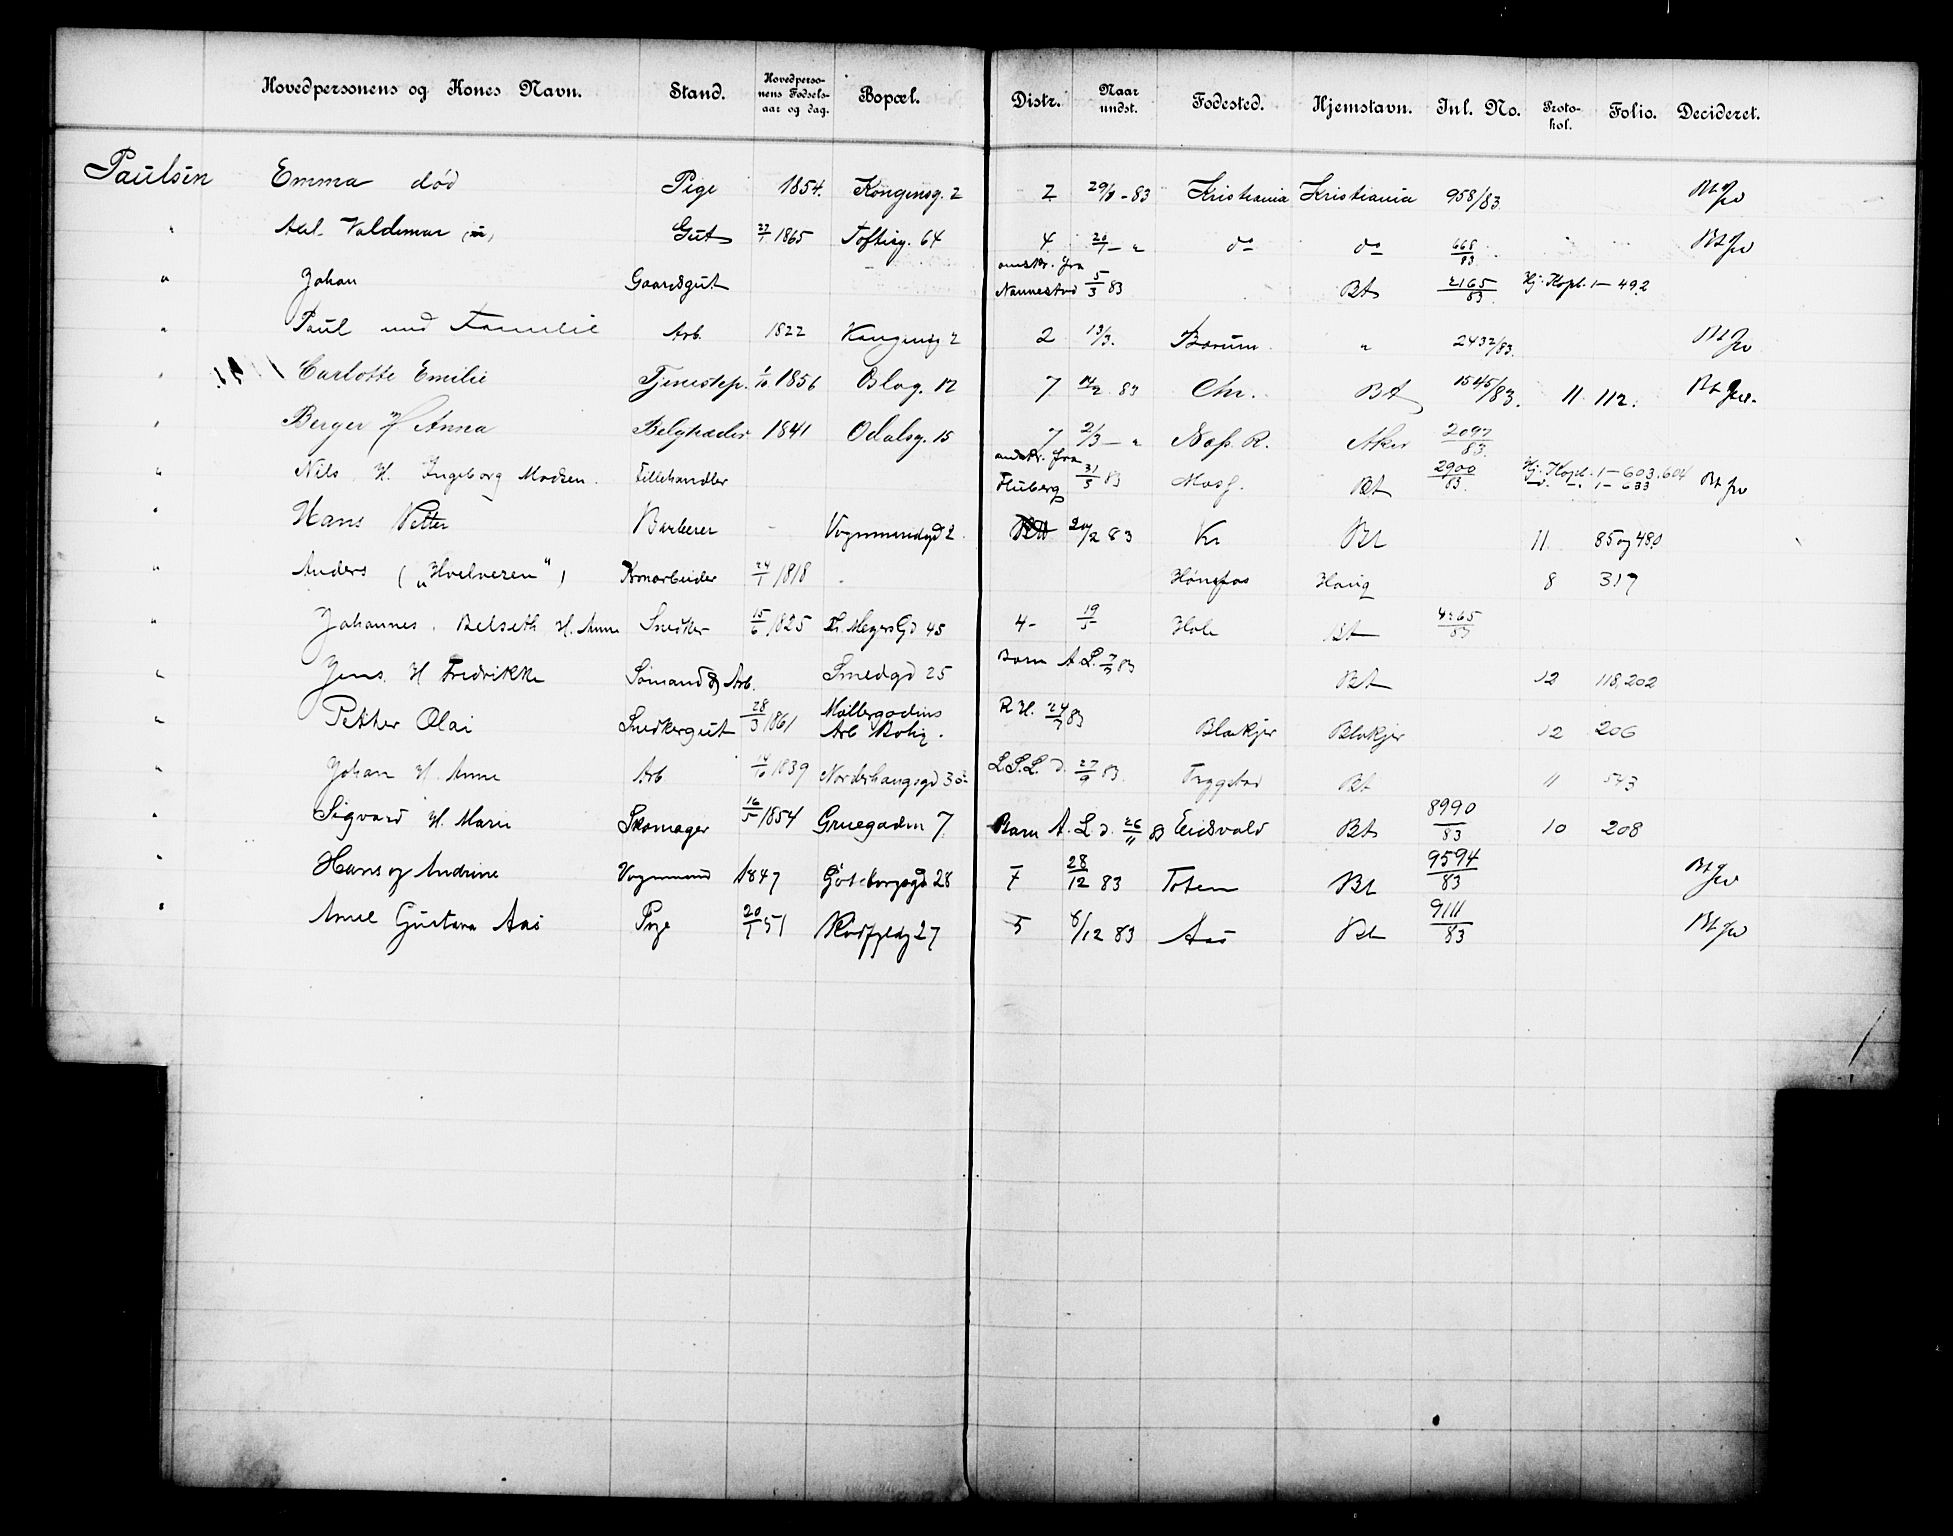 Hovedpersonens og Kones Navn. Stand. Hovedpersonens Fødselsaar og dag. Bopæl. Distr. Naar undst. Fødested. Hjemstavn. Inl. No. Protokol. Folio. Decideret.
Paulsen Emma død Pige 1854. Kongensg. 2 2 29/1-83 Kristiania Kristiania 958/83 Bt
" Valdemar Gut 1865 Toftesg. 64 4 20/1 - " do do 668/83 Bt
" Johan Gaardsgut anskr. fra Nannestad 5/3 83 Bt 2165/83 Hj. Kopb. 1 - 492
" Paul med Familie Arb. 1822 Kongensg 2 2 13/3. Bærum " 2432/83. Bt
" Carlotte Emilie Tjenestep. 1/10 1856 Oslog. 12 7 14/2 83 Chr. Bt 1545/83. 11 112. Bt
" Berger H Anna 1841 Odalsg. 15 7 2/3 - " Næs. R. Aker 2097/83.
" Nils H. Ingeborg Madsen. Fillehandler anskr. fra Fluberg 31/5 83 Bt 2900/83. Hj. Kopb. 1 - 603.604 1 - 633 Bt
" Hans Petter Barberer Vognmandsgd 2 2 83 Kr Bt 11 85 og 480
" Anders („Hvelveren") 24/1 1818 Hønefos Haug 8 317
" Johannes. Belseth H. Anne Snedker 15/6 1825 Th. Meyers Gd 45 4 - 19/5 Hole Bt 4265/83
" Jens H Fredrikke Sømand og Arb. Smedgd 25 Barn A.L. 7/7 83 Bt 12 118,202
" Petter Olai Snedkergut 28/3 1861 Møllergadens Arb Bolig. R.H. 24/7 83 Blakjer Blakjer 12 206
" Johan H. Anne Arb 14/10 1839 Norderhaugsgd 30 L.S.L. d. 27/9 83. Trygstad Bt 11 543
" Sigvard H. Marie Skomager 16/5 1854 Gruegaden 7 Barn A.L. d. 26/11 83 Eidsvold Bt 8990/83 10 208
" Hans og Andrine Vognmand 1847 Gøteborgsgd 28 7 28/12 83 Toten Bt 9594/83 Bt
" Gustava Aas Pige 20/1 51 27 5 6/12 83 Aas Bt 9111/83 Bt